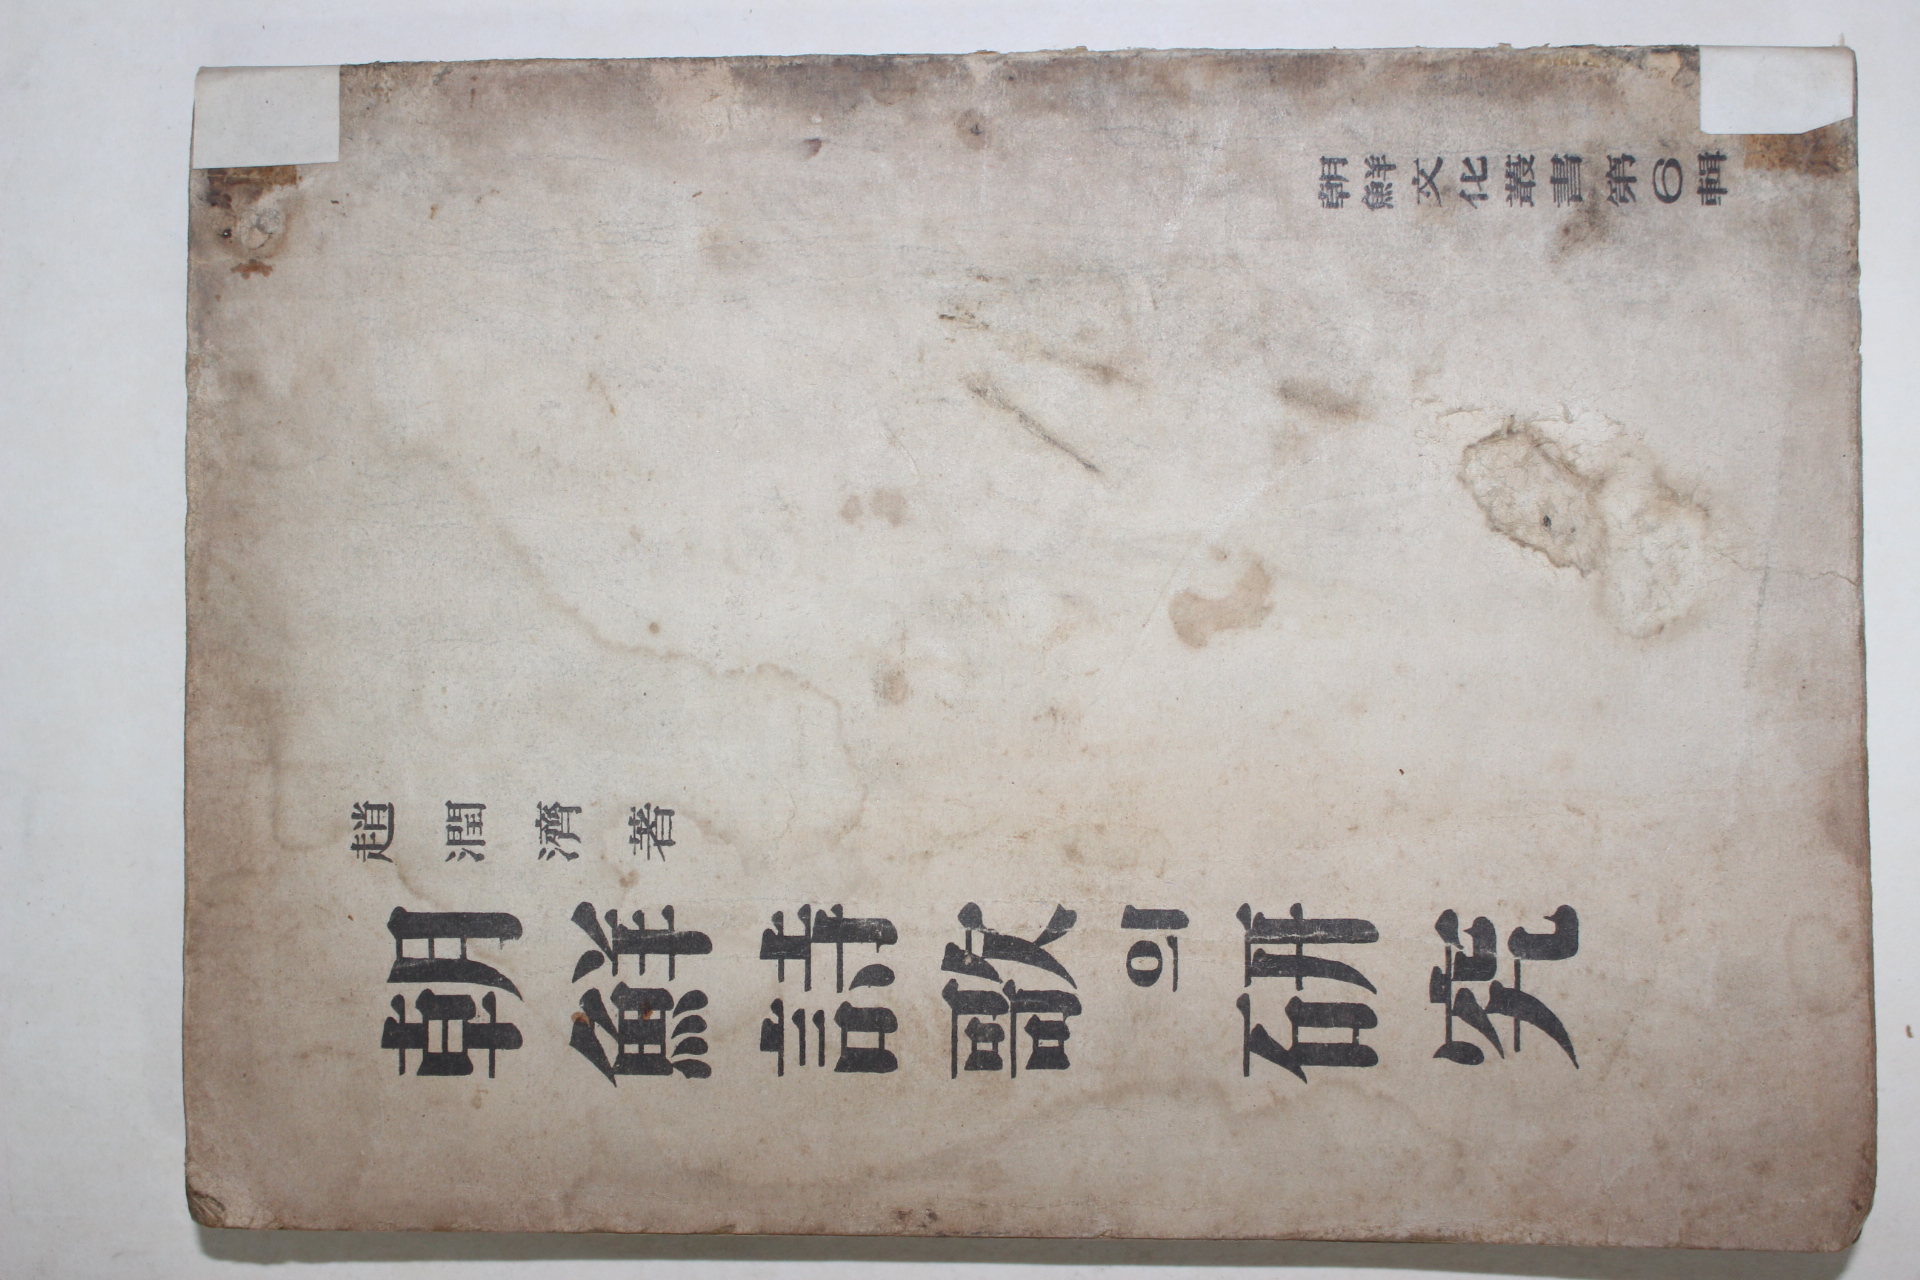 朝鮮詩歌의硏究
趙潤濟著
朝鮮文化叢書第6輯